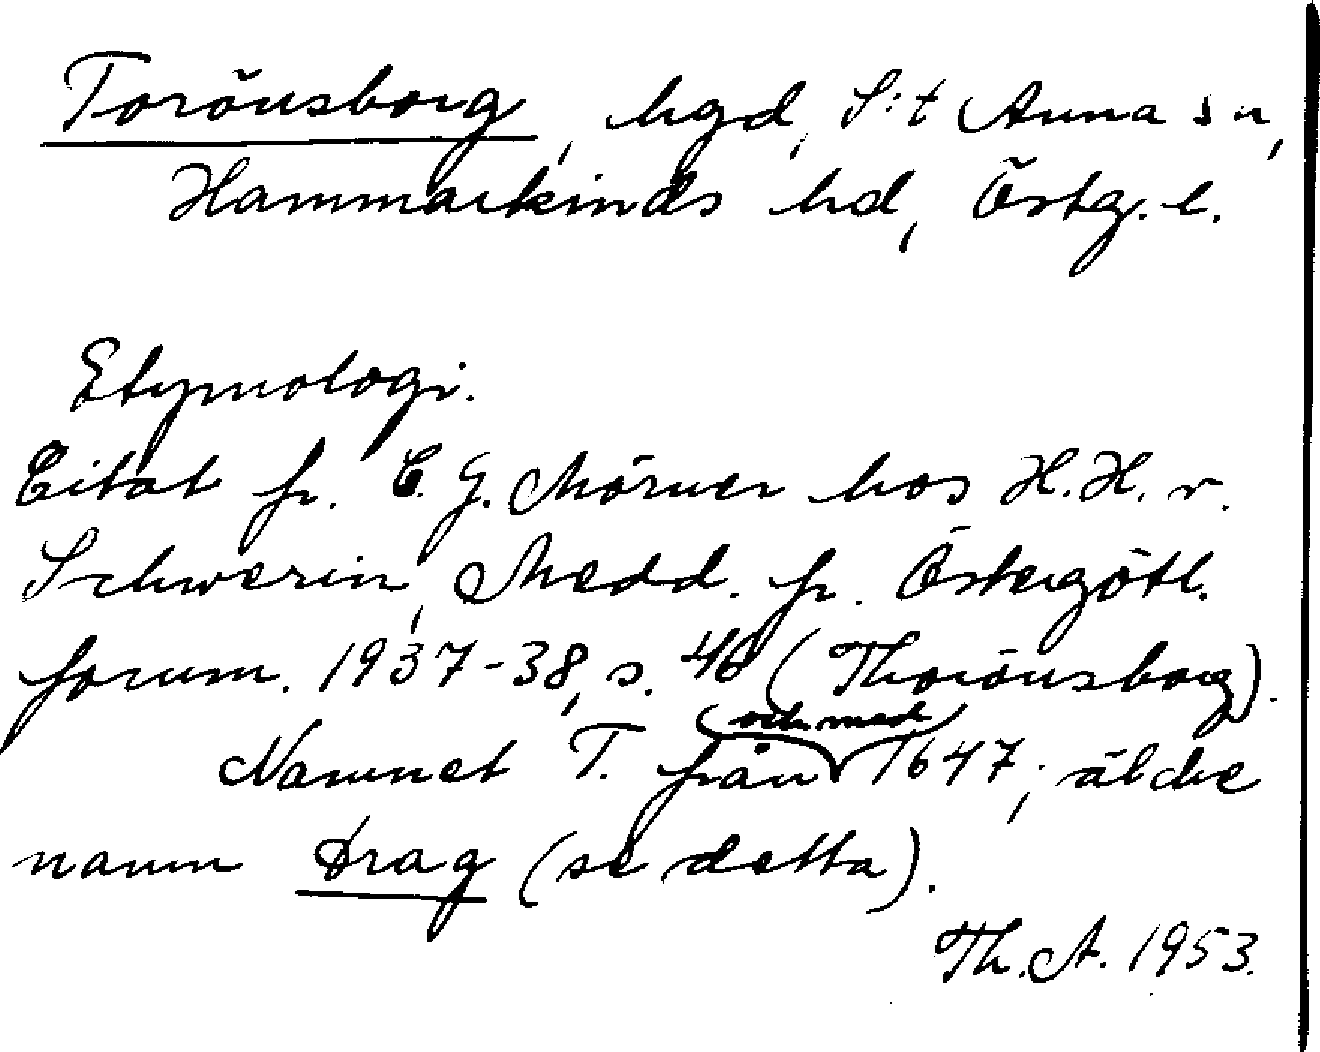 Torönsborg, hgd, S:t Anna sn,
Hammarkinds hd, Östg. l.
Etymologi.
Citat fr. C. G. Mörner hos H.H. v.
Schwerin, Medd. fr. Östergötl.
fornm. 1937-38, s. 46 (Thorönsborg).
Namnet T. från och med 1647; äldre
namn Drag (se detta).
Th. A. 1953.